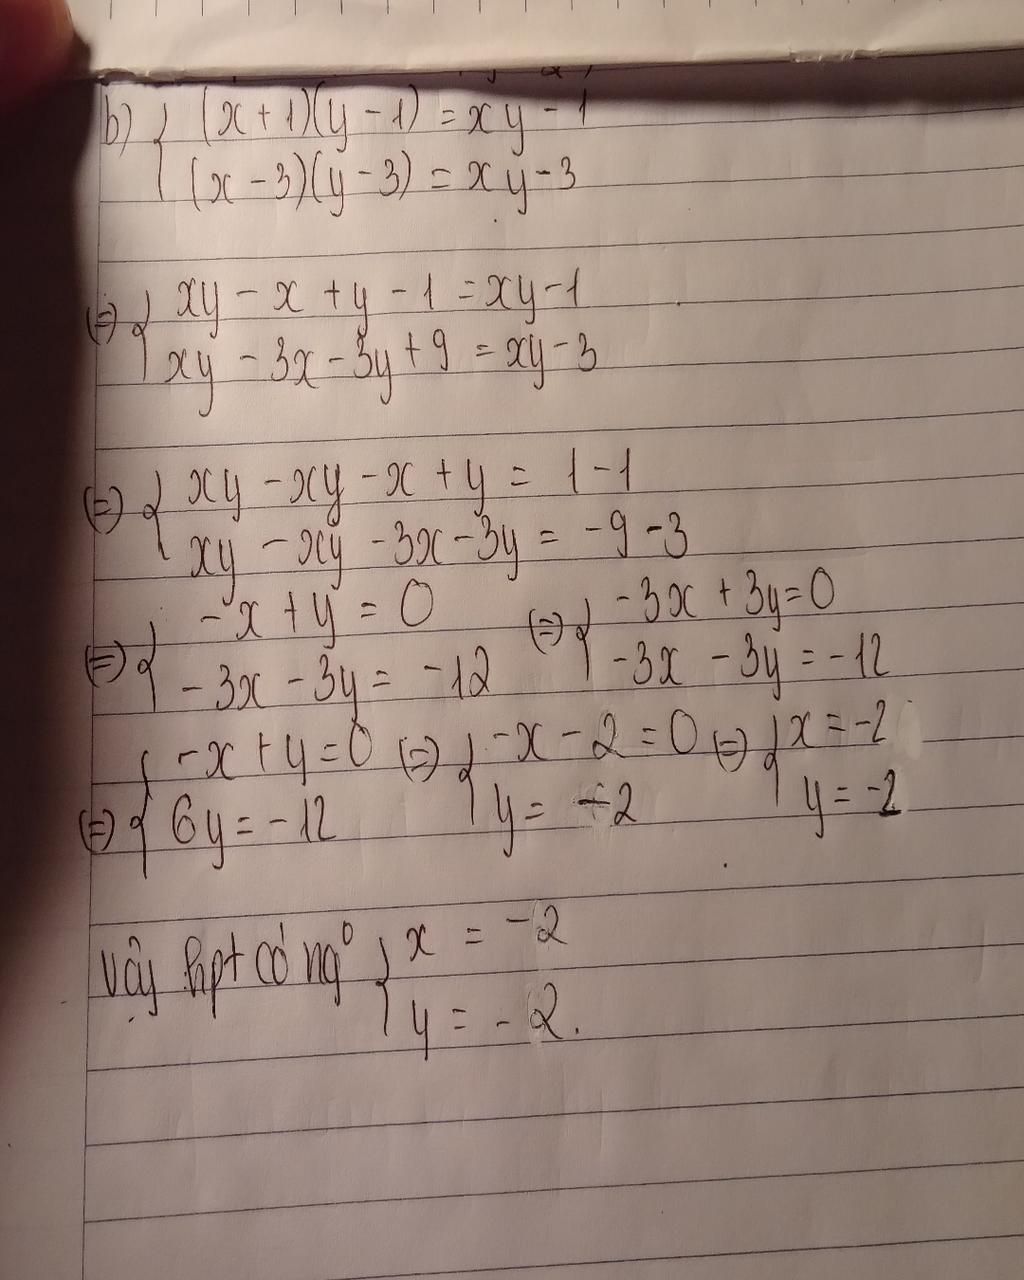 b) { (x + 1)(y - 1) = xy - 1
(x - 3)(y - 3) = xy - 3
(=) { xy - x + y - 1 = xy - 1
xy - 3x - 3y + 9 = xy - 3
(=) { xy - xy - x + y = 1 - 1
xy - xy - 3x - 3y = -9 - 3
(=) { -x + y = 0 (=) { -3x + 3y = 0
-3x - 3y = -12 -3x - 3y = -12
(=) { -x + y = 0 (=) { -x - 2 = 0 (=) { x = -2
6y = -12 y = -2 y = -2
Vậy hpt có ngº { x = -2
y = -2.